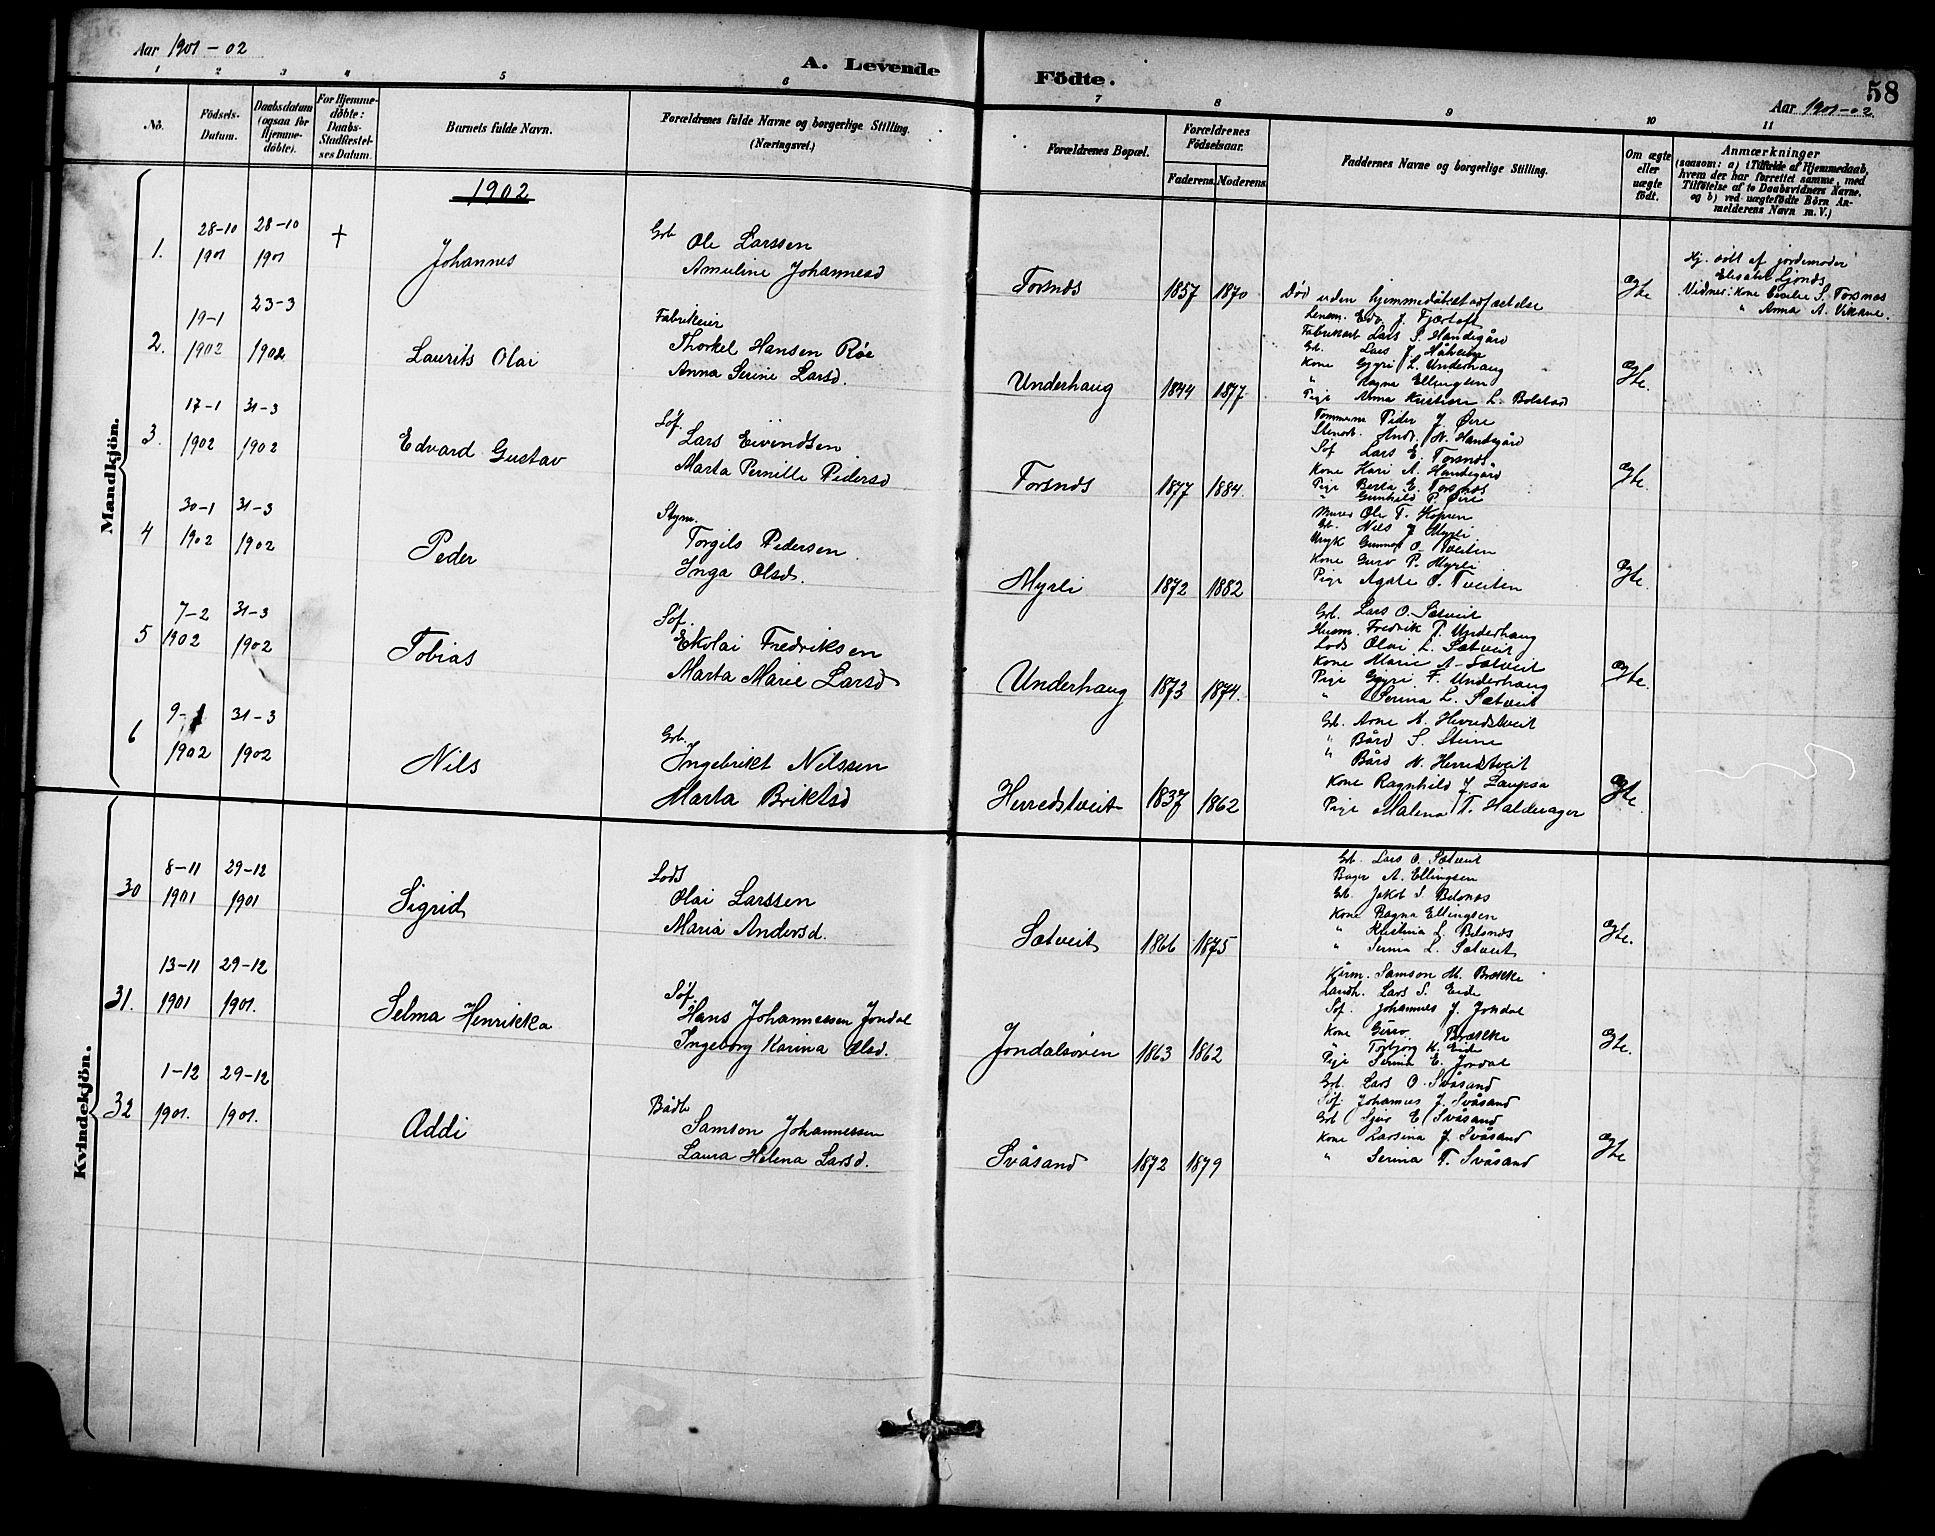 Aar 1901-02
A. Levende Födte.
58
Aar 1901-02
1 2 3 4 5 6 7 8 9 10 11
No.
Födsels-Datum.
Daabsdatum (ogsaa for Hjemme-døbte).
For Hjemme-døbte: Daabs-Stadfæstel-ses Datum.
Barnets fulde Navn.
Forældrenes fulde Navne og borgerlige Stilling. (Næringsvei.)
Forældrenes Bopæl.
Forældrenes Födselsaar.
Faderens. Moderens.
Faddernes Navne og borgerlige Stilling.
Om ægte eller uægte födt.
Anmærkninger
(saasom: a) i Tilfælde af Hjemmedaab, hvem der har forrettet samme, med Tilføielse af to Daabsvidners Navne, og b) ved uægtefødte Börn An-melderens Navn m. V.)
Mandkjön.
1902
1. 28-10 1901 28-10 1901 † Johannes
Grb. Ole Larssen
Ameline Johannesd
Torsnæs 1857 1870
Død uden hjemmedåbstadfæstelse
Ægte
Hj. døbt af jordemoder
Elisabet Ljones
Vidner: Kone S. Torsnes
" Anna A. Vikane.
2. 19-1 1902 23-3 1902 Laurits Olai
Fabrikeier
Thorkel Hansen Røe
Anna Serine Larsd.
Underhaug 1844 1877
Lensm. Edv. J. Fjærtoft
Fabrikarb Lars S. Handegård
Grb. Lars J.
Kone Gyri L. Underhaug
" Ragna Ellingsen
Pige Anna Kristine L. Bolstad
Ægte.
3. 17-1 1902 31-3 1902 Edvard Gustav
Søf. Lars Eivindsen
Marta Pernille Pedersd
Torsnæs 1877 1884
Tømmerm Peder J. Øire
Stenarb. Andr. N. Handegård
Søf Lars E. Torsnæs
Kone Kari A. Handegård
Pige Berta E. Torsnæs
" Gunhild P. Øire
Ægte.
4 30-1 1902 31-3 1902 Peder
Stym.
Torgils Pedersen
Inga Olsd.
Myrli 1872 1882
Murer Ole T. Kopren
Grb. Nils J. Myrli
Ungk Gunnar O. Tveiten
Kone Guro P. Myrli
Pige Agate O. Tveiten
Ægte.
5 7-2 1902 31-3 1902 Tobias
Søf.
Ekolai Fredriksen
Marta Marie Larsd
Underhaug 1873 1874.
Grb. Lars O. Sætveit
Husm. Fredrik T. Underhaug
Lods Olai L. Sætveit
Kone Marie A. Sætveit
Pige Gyri F. Underhaug
" Serina L. Sætveit
Ægte.
6 9- 1902 31-3 1902 Nils
Grb.
Ingebrikt Nilssen
Marta Briktsd
Herredstveit 1837 1862
Grb. Arne N. Herredstveit
" Bård S. Steine
" Bård N. Herredstveit
Kone Ragnhild J. Laupsa
Pige Malena T. Halderager
Ægte.
Kvindekjön.
30 8-11 1901 29-12 1901 Sigrid
Lods
Olai Larssen
Maria Andersd.
Sætveit 1866 1875
Grb. Lars O. Sætveit
Bager A. Ellingsen
Grb. Jakob S. Belsnæs
Kone Ragna Ellingsen
" Kristina L. Belsnæs
" Serina L. Sætveit
Ægte.
31. 13-11 1901 29-12 1901. Selma Henrikka
Søf.
Hans Johannessen Jondal
Ingeborg Karina Olsd.
Jondalsøren 1863 1862
Kirm. Samson M. Brække
Landh. Lars S. Eide
Søf. Johannes J. Jondal
Kone Guro Brække
" Torbjørg K. Eide
Pige Serina E. Jondal
Ægte.
32 1-12 1901. 29-12 1901. Addi
Bådb
Samson Johannessen
Laura Helena Larsd.
Svåsand 1872 1879
Grb. Lars O. Svåsand
Søf. Johannes J. Svåsand
Grb Sjur E. Svåsand
Kone Larsina J. Svåsand
" Serina T. Svåsand
Ægte